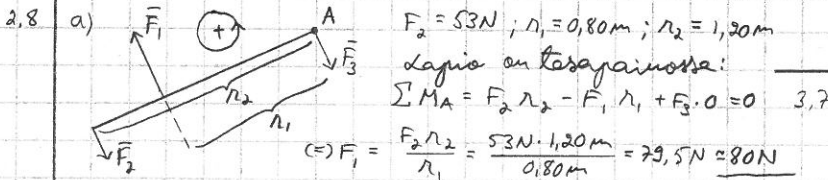 2,8 a) F̄₁ + A F₂ = 53N ; r₁ = 0,80m ; r₂ = 1,20m
F̄₃ Lapio on tasapainossa:
r₂ r₁ ΣM_A = F₂ r₂ - F₁ r₁ + F₃·0 = 0 3,7
F̄₂ (=) F₁ = F₂ r₂ / r₁ = 53N·1,20m / 0,80m = 79,5N ≃ 80N